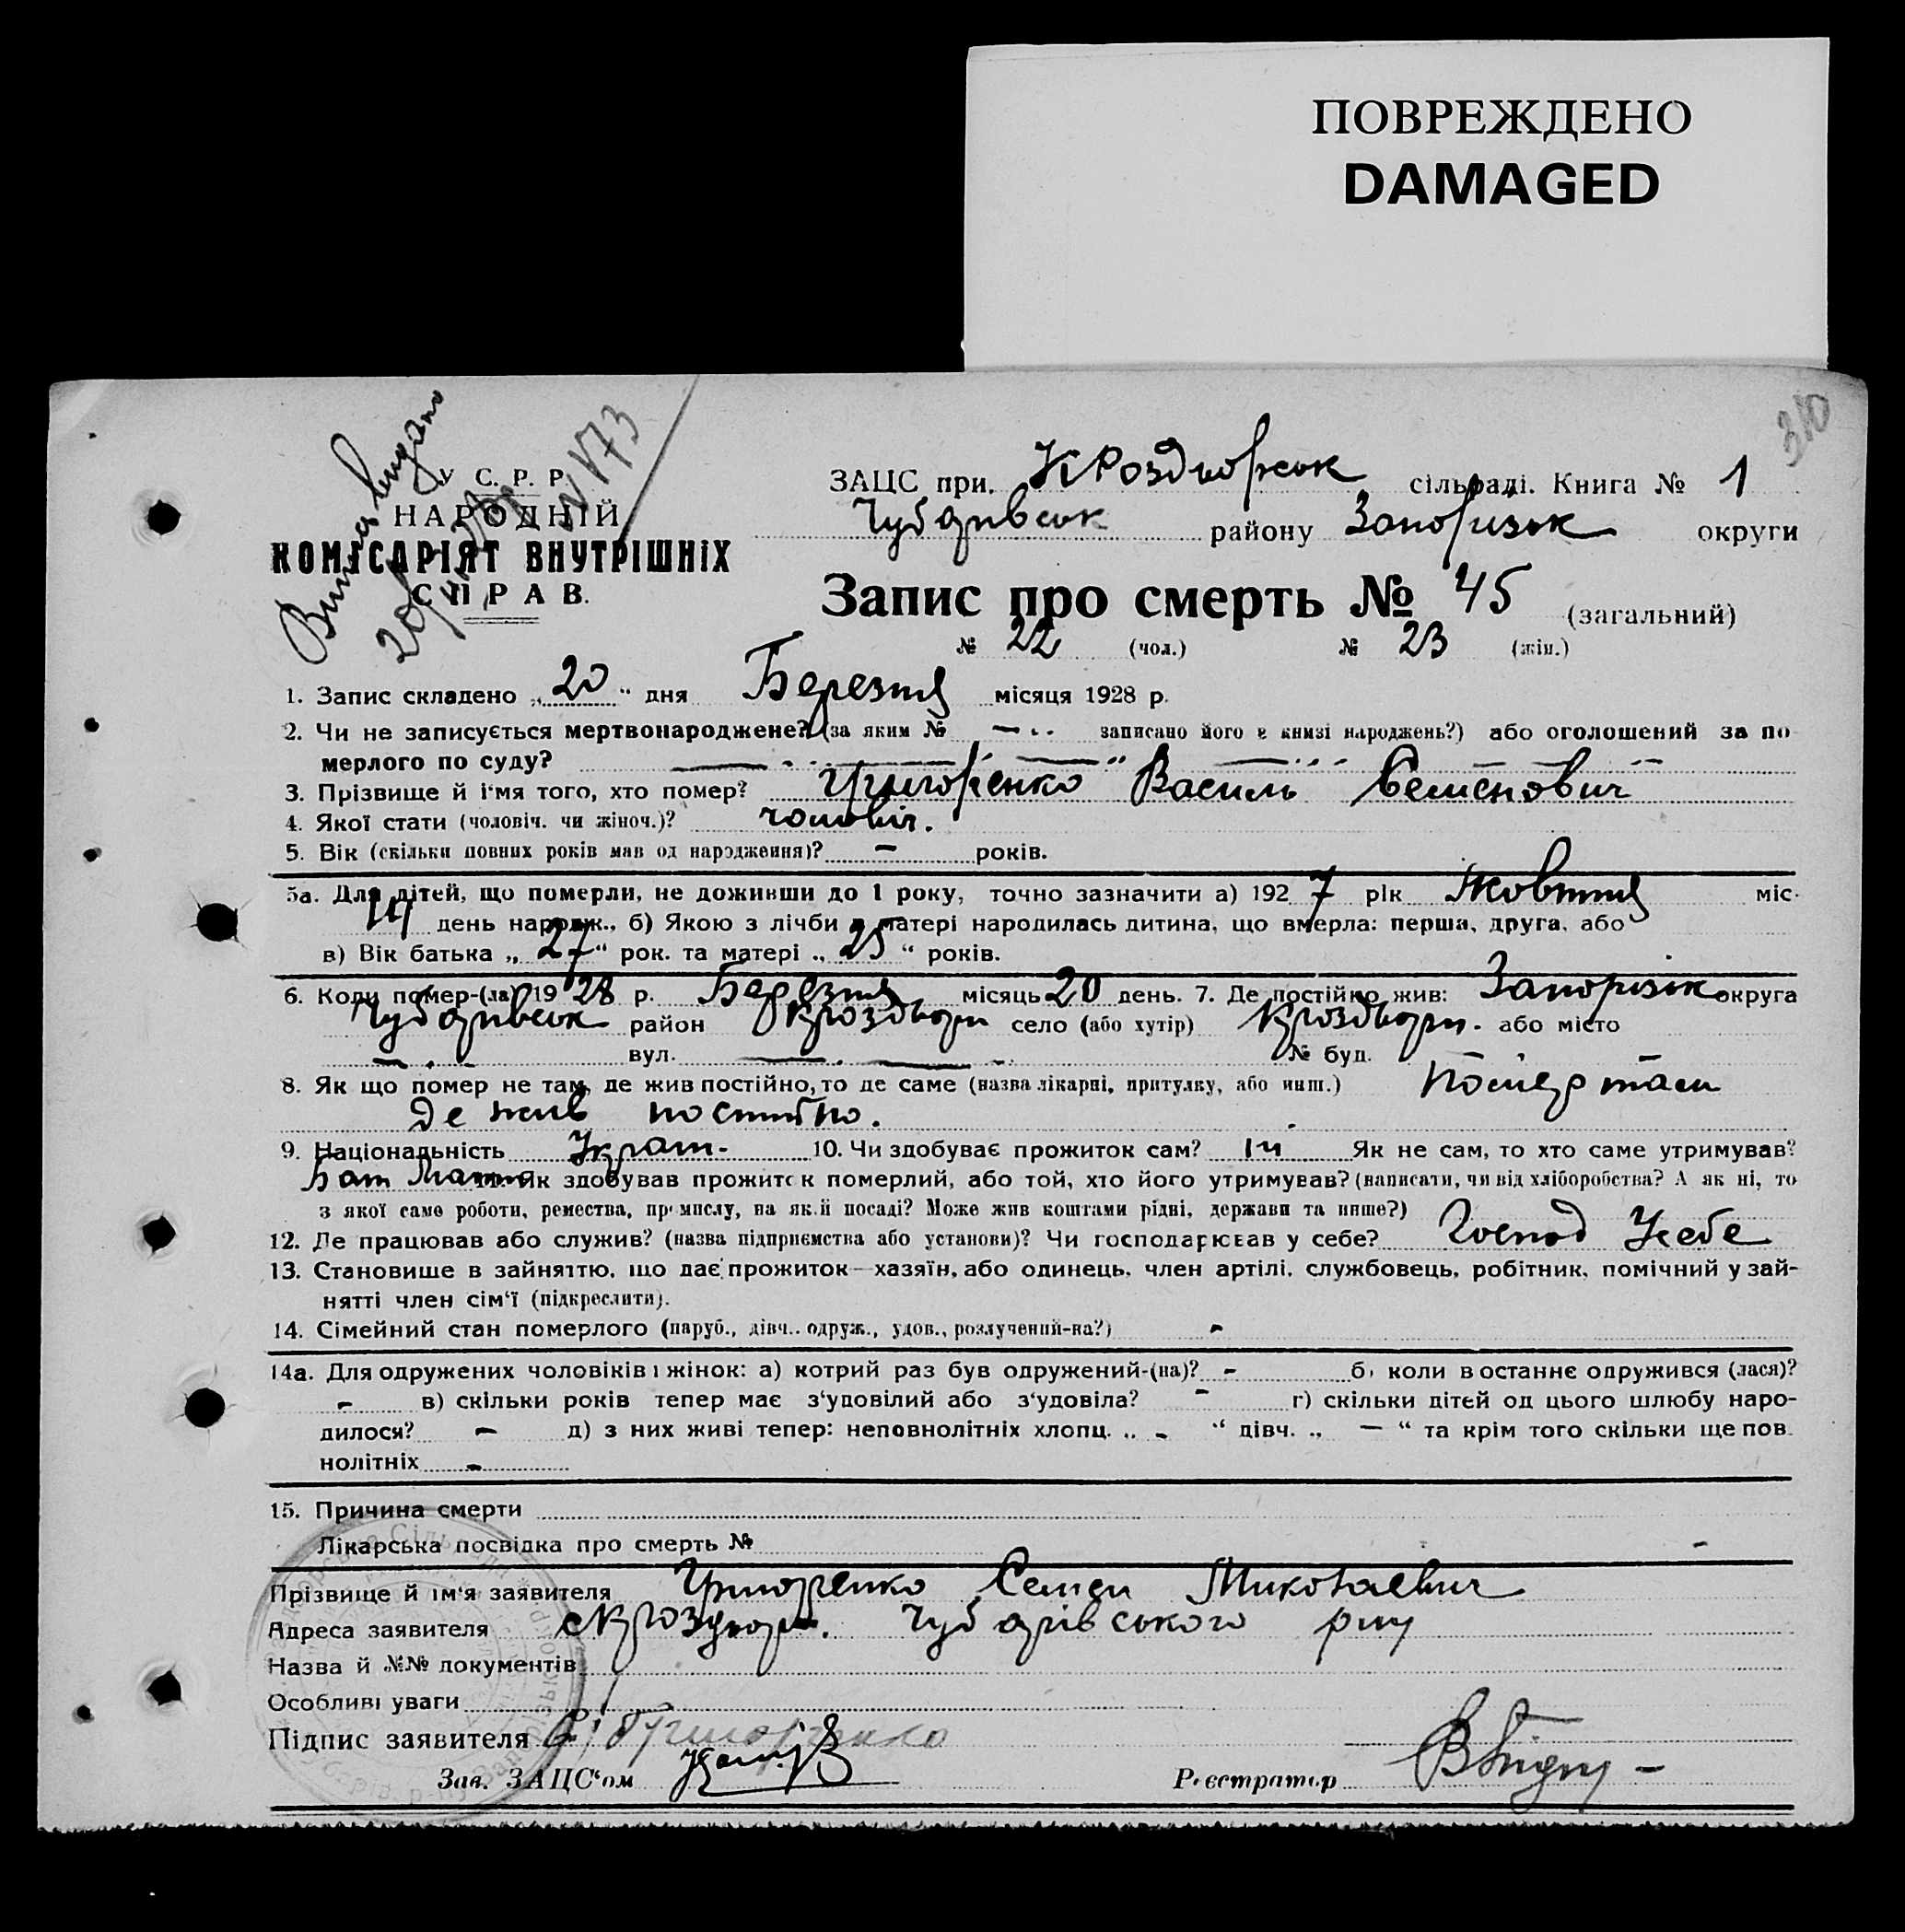 ПОВРЕЖДЕНО
DAMAGED
310
Витяг видано
N 173
У С. Р. Р.
НАРОДНІЙ
КОМІСАРІЯТ ВНУТРІШНІХ
СПРАВ.
ЗАЦС при. сільраді. Книга № 1
Чубарівськ району Запорізьк округи
Запис про смерть № 45 (загальний)
№ 22 (чол.) № 23 (жін.)
1. Запис складено „ 20 “ дня Березня місяця 1928 р.
2. Чи не записується мертвонароджене? (за яким № — записано його в книзі народжень?) або оголошений за по
мерлого по суду? —
3. Прізвище й ім'я того, хто помер? Григоренко Василь Семенович
4. Якої стати (чоловіч. чи жіноч.)? чоловіч.
5. Вік (скільки повних років мав од народження)? — років.
5а. Для дітей, що померли, не доживши до 1 року, точно зазначити а) 1927 рік Жовтня міс.
14 день народж., б) Якою з лічби в матері народилась дитина, що вмерла: перша, друга, або
в) Вік батька „ 27 “ рок. та матері „ 25 “ років.
6. Коли помер-(ла) 1928 р. Березня місяць 20 день. 7. Де постійно жив: Запорізьк округа
Чубарівськ район село (або хутір) або місто
— вул. — № буд.
8. Як що помер не там, де жив постійно, то де саме (назва лікарні, притулку, або инш.) Помер там
де жив постійно.
9. Національність Украт. 10. Чи здобуває прожиток сам? ні Як не сам, то хто саме утримував?
Бат Мати Як здобував прожиток померлий, або той, хто його утримував? (написати, чи від хліборобства? А як ні, то
з якої саме роботи, ремества, промислу, на якій посаді? Може жив коштами рідні, держави та инше?)
12. Де працював або служив? (назва підприємства або установи)? Чи господарював у себе? Господ Усебе
13. Становище в зайняттю, що дає прожиток—хазяїн, або одинець, член артілі, службовець, робітник, помічний у зай-
нятті член сім'ї (підкреслити).
14. Сімейний стан померлого (паруб., дівч.. одруж., удов., розлучений-на?) -
14а. Для одружених чоловіків і жінок: а) котрий раз був одружений-(на)? - б) коли востаннє одружився (лася)?
- в) скільки років тепер має з'удовілий або з'удовіла? - г) скільки дітей од цього шлюбу наро-
дилося? — д) з них живі тепер: неповнолітніх хлопц. „ - “ дівч. „ — “ та крім того скільки ще пов.
нолітніх -
15. Причина смерти
Лікарська посвідка про смерть № -
Прізвище й ім'я заявителя Григоренко Семен Миколаевич
Адреса заявителя Чубарівського рну
Назва й №№ документів
Особливі уваги
Підпис заявителя С. Григоренко
Зав. ЗАЦС'ом
Реєстратор